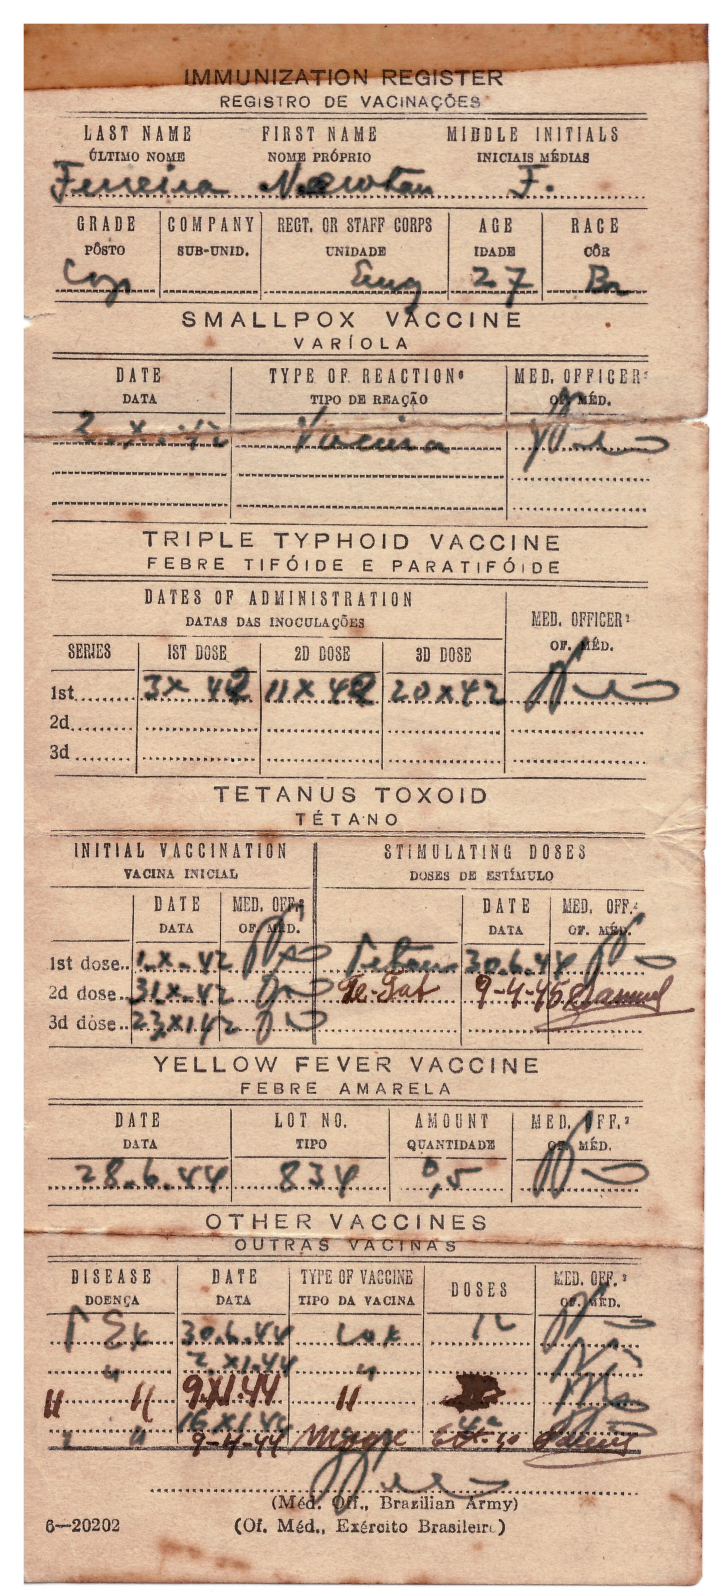 IMMUNIZATION REGISTER
REGISTRO DE VACINAÇÕES
LAST NAME FIRST NAME MIDDLE INITIALS
ÚLTIMO NOME NOME PRÓPRIO INICIAIS MÉDIAS
Ferreira Newton F.
GRADE COMPANY REGT. OR STAFF CORPS AGE RACE
PÔSTO SUB-UNID. UNIDADE IDADE CÔR
Cap Eng 27 Br
SMALLPOX VACCINE
VARÍOLA
DATE TYPE OF REACTION MED. OFFICER²
DATA TIPO DE REAÇÃO OF. MÉD.
2.X.42 Vacina
TRIPLE TYPHOID VACCINE
FEBRE TIFÓIDE E PARATIFÓIDE
DATES OF ADMINISTRATION
DATAS DAS INOCULAÇÕES
MED. OFFICER²
OF. MÉD.
SERIES 1ST DOSE 2D DOSE 3D DOSE
1st 3 X 42 11 X 42 20 X 42
2d
3d
TETANUS TOXOID
TÉTANO
INITIAL VACCINATION STIMULATING DOSES
VACINA INICIAL DOSES DE ESTÍMULO
DATE MED. OFF.² DATE MED. OFF.²
DATA OF. MÉD. DATA OF. MÉD.
1st dose 1.X.42 30.6.44
2d dose 31.X.42 Te-Tat 9-4-45
3d dose 23.XI.42
YELLOW FEVER VACCINE
FEBRE AMARELA
DATE LOT NO. AMOUNT MED. OFF.²
DATA TIPO QUANTIDADE OF. MÉD.
28.6.44 834 0,5
OTHER VACCINES
OUTRAS VACINAS
DISEASE DATE TYPE OF VACCINE DOSES MED. OFF.²
DOENÇA DATA TIPO DA VACINA OF. MÉD.
30.6.44
2.XI.44 "
" " 9.XI.44 "
" 16 XI 44
9-4-44
(Méd. Off., Brazilian Army)
6—20202 (Of. Méd., Exército Brasileiro)